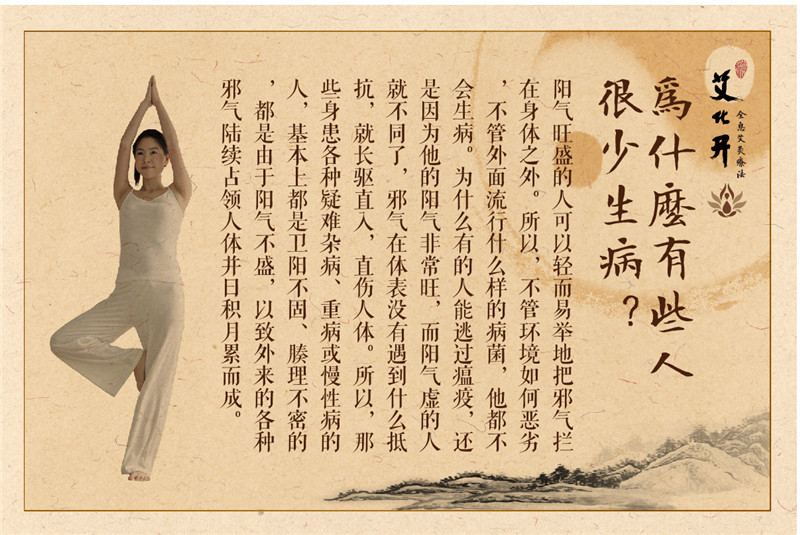 艾化开
全息艾灸療法
爲什麼有些人
很少生病？
阳气旺盛的人可以轻而易举地把邪气拦
在身体之外。所以，不管环境如何恶劣
，不管外面流行什么样的病菌，他都不
会生病。为什么有的人能逃过瘟疫，还
是因为他的阳气非常旺，而阳气虚的人
就不同了，邪气在体表没有遇到什么抵
抗，就长驱直入，直伤人体。所以，那
些身患各种疑难杂病、重病或慢性病的
人，基本上都是卫阳不固、腠理不密的
，都是由于阳气不盛，以致外来的各种
邪气陆续占领人体并日积月累而成。